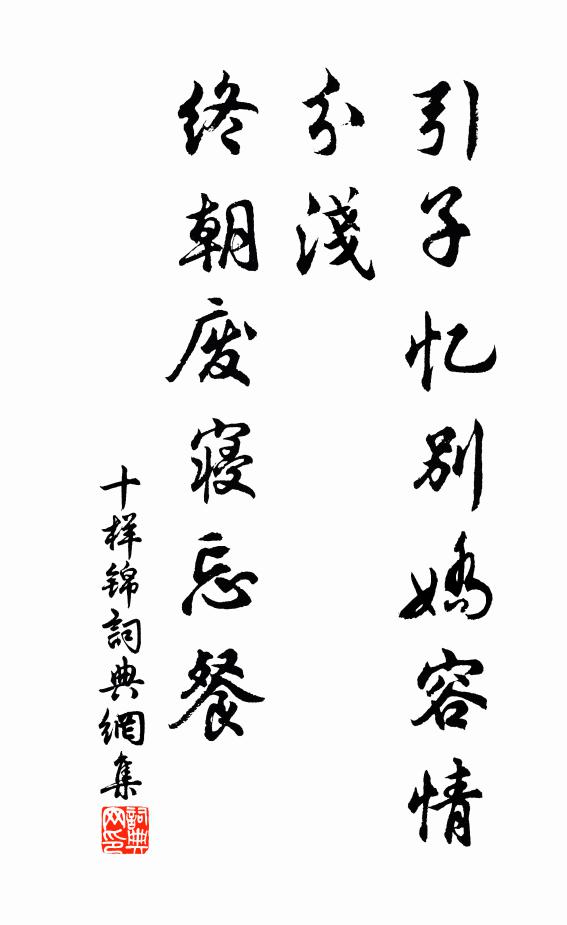 引子忆别娇容情
分浅
终朝废寝忘餐
十样锦詞典網集
詞典网印